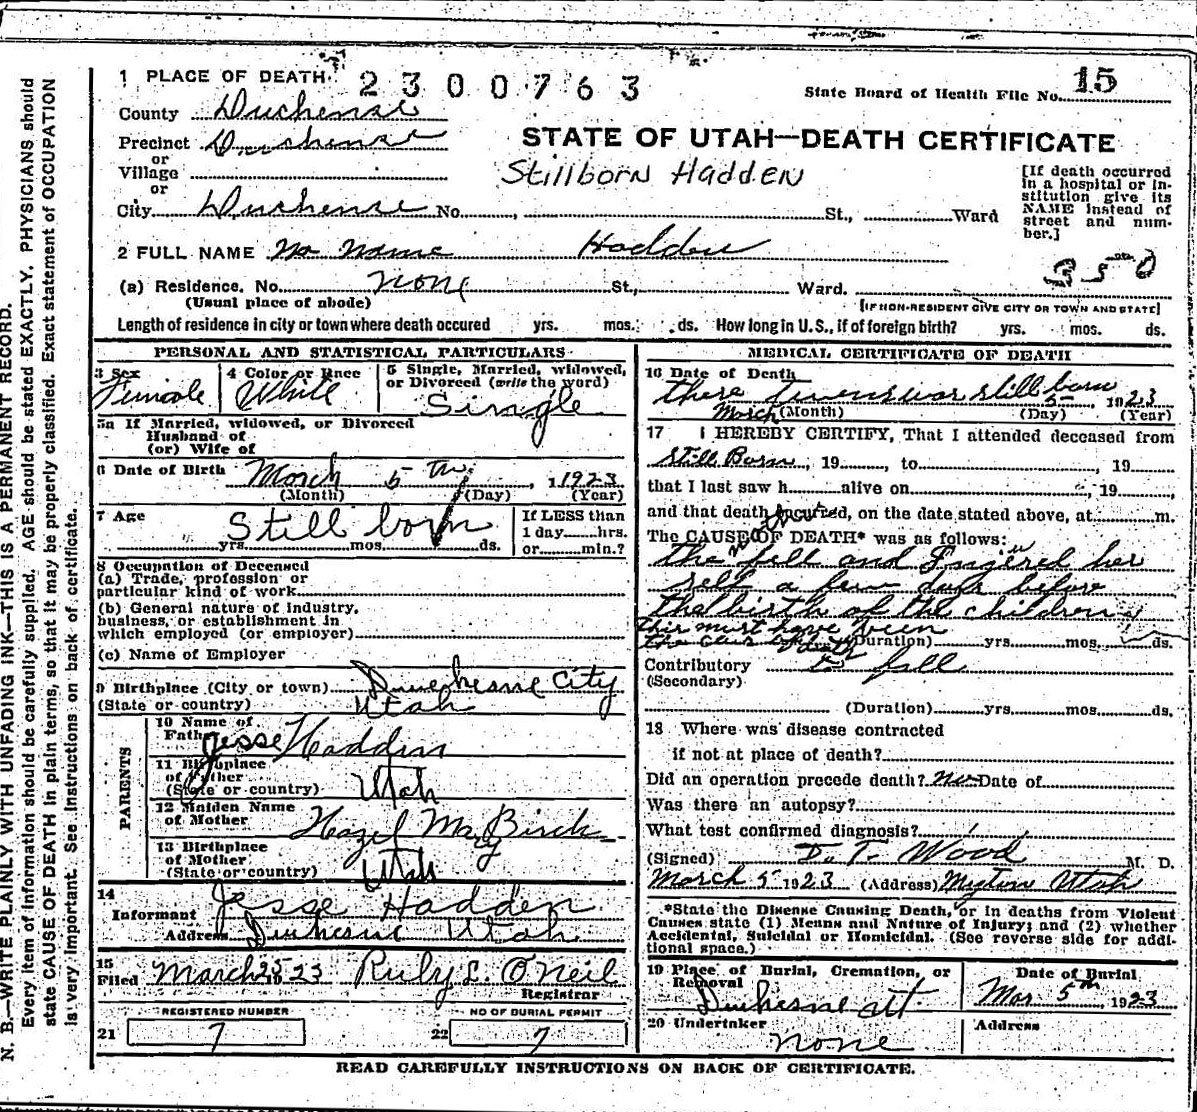 1 PLACE OF DEATH 2300763
State Board of Health File No. 15
County Duchesne
STATE OF UTAH—DEATH CERTIFICATE
Precinct Duchesne
or
Village
or
Stillborn Hadden
City Duchesne No. , St., Ward
[If death occurred
in a hospital or in-
stitution give its
NAME instead of
street and num-
ber.]
2 FULL NAME No name Hadden
350
(a) Residence. No. none St., Ward.
(Usual place of abode)
[IF NON-RESIDENT GIVE CITY OR TOWN AND STATE]
Length of residence in city or town where death occured yrs. mos. ds. How long in U.S., if of foreign birth? yrs. mos. ds.
PERSONAL AND STATISTICAL PARTICULARS
3 Sex
Female
4 Color or Race
White
5 Single, Married, widowed,
or Divorced (write the word)
Single
5a If Married, widowed, or Divorced
Husband of
(or) Wife of
6 Date of Birth March 5 th, 1923
(Month) (Day) (Year)
7 Age Still born
yrs. mos. ds.
If LESS than
1 day hrs.
or min.?
8 Occupation of Deceased
(a) Trade, profession or
particular kind of work
(b) General nature of industry,
business, or establishment in
which employed (or employer)
(c) Name of Employer
9 Birthplace (City or town) Duchesne City
(State or country) Utah
PARENTS
10 Name of
Father Jesse Hadden
11 Birthplace
of Father
(State or country) Utah
12 Maiden Name
of Mother Hazel May Birch
13 Birthplace
of Mother
(State or country) Utah
14
Informant Jesse Hadden
Address Duchesne Utah
15
Filed March 25 1923 Ruby L. O'Neil
Registrar
REGISTERED NUMBER
21 7
NO OF BURIAL PERMIT
22 7
MEDICAL CERTIFICATE OF DEATH
16 Date of Death
these twens was still born
March 5 1923
(Month) (Day) (Year)
17 I HEREBY CERTIFY, That I attended deceased from
Still Born, 19 , to , 19
that I last saw h alive on , 19 ,
and that death occured, on the date stated above, at m.
The CAUSE OF DEATH* was as follows:
the mother fell and Injured her
self a few days before
the birth of the children
this must have been
the (Duration) yrs. mos. ds.
Contributory fall
(Secondary)
(Duration) yrs. mos. ds.
18 Where was disease contracted
if not at place of death?
Did an operation precede death? no Date of
Was there an autopsy?
What test confirmed diagnosis?
(Signed) D. T. Wood M. D.
March 5 1923 (Address) Myton Utah
*State the Disease Causing Death, or in deaths from Violent
Causes state (1) Means and Nature of Injury; and (2) whether
Accidental, Suicidal or Homicidal. (See reverse side for addi-
tional space.)
19 Place of Burial, Cremation, or
Removal
Duchesne
Date of Burial
Mar 5th 1923
20 Undertaker
none
Address
READ CAREFULLY INSTRUCTIONS ON BACK OF CERTIFICATE.
N. B.—WRITE PLAINLY WITH UNFADING INK—THIS IS A PERMANENT RECORD.
Every item of information should be carefully supplied. AGE should be stated EXACTLY. PHYSICIANS should
state CAUSE OF DEATH in plain terms, so that it may be properly classified. Exact statement of OCCUPATION
is very important. See instructions on back of certificate.